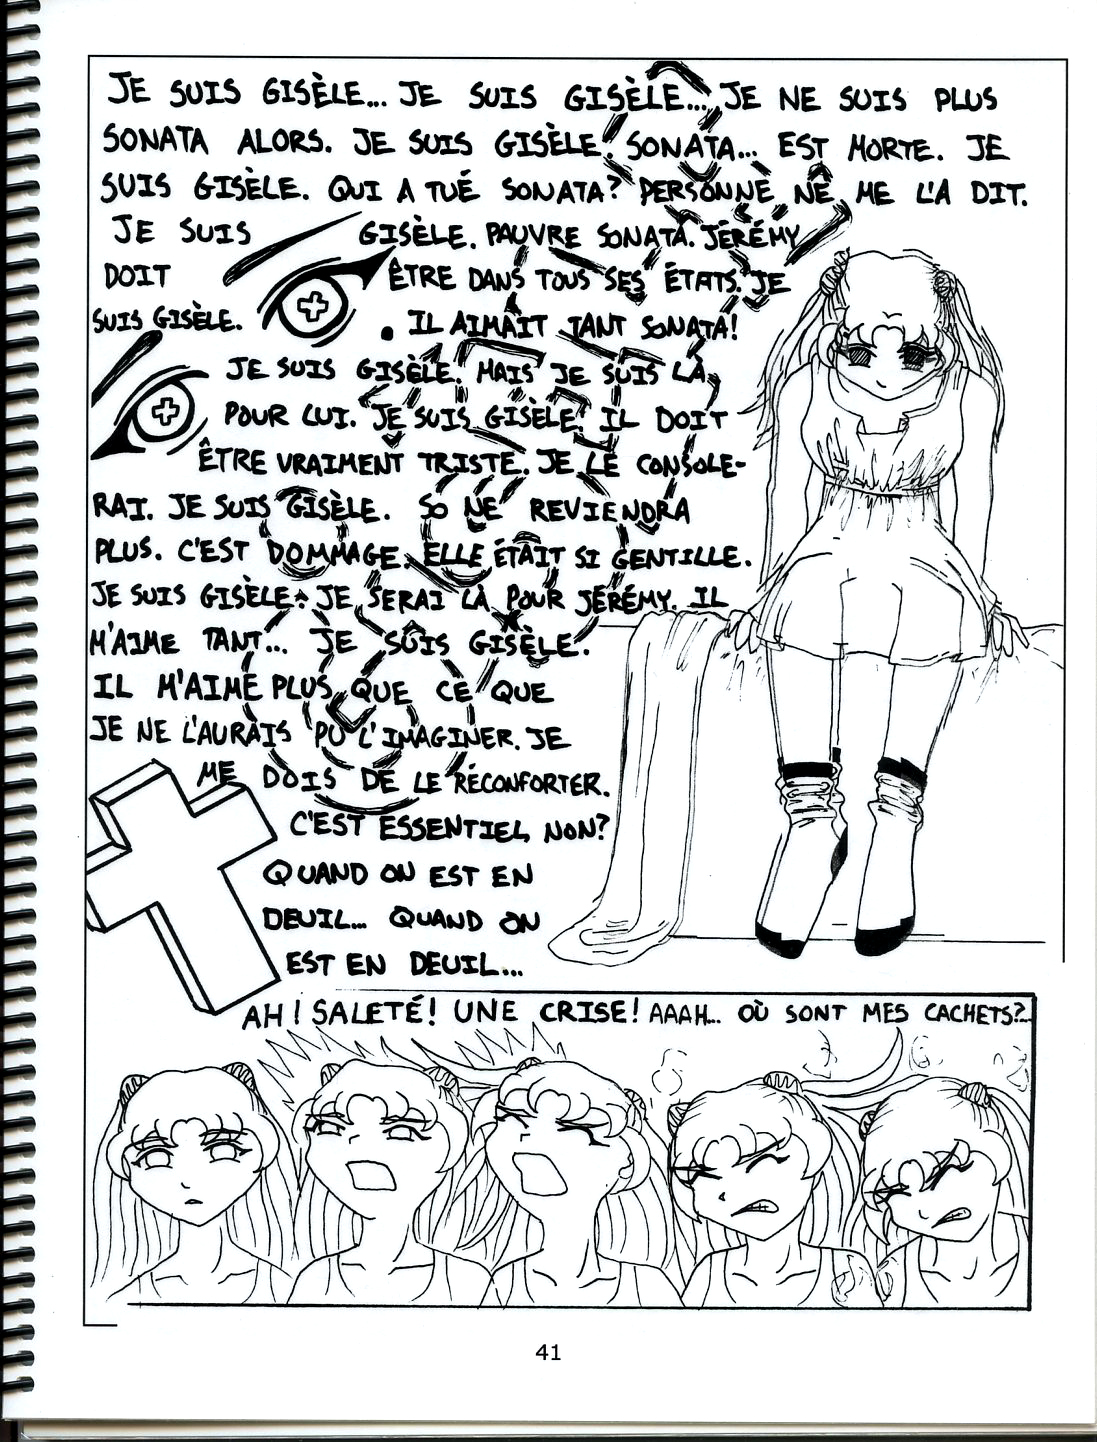 JE SUIS GISÈLE... JE SUIS GISÈLE... JE NE SUIS PLUS
SONATA ALORS. JE SUIS GISÈLE. SONATA... EST MORTE. JE
SUIS GISÈLE. QUI A TUÉ SONATA? PERSONNE NE ME L'A DIT.
JE SUIS GISÈLE. PAUVRE SONATA. JÉRÉMY
DOIT ÊTRE DANS TOUS SES ÉTATS. JE
SUIS GISÈLE. IL AIMAIT TANT SONATA!
JE SUIS GISÈLE. MAIS JE SUIS LÀ,
POUR LUI. JE SUIS GISÈLE. IL DOIT
ÊTRE VRAIMENT TRISTE. JE LE CONSOLE-
RAI. JE SUIS GISÈLE. SO NE REVIENDRA
PLUS. C'EST DOMMAGE. ELLE ÉTAIT SI GENTILLE.
JE SUIS GISÈLE. JE SERAI LÀ POUR JÉRÉMY. IL
M'AIME TANT... JE SUIS GISÈLE.
IL M'AIME PLUS QUE CE QUE
JE NE L'AURAIS PU L'IMAGINER. JE
ME DOIS DE LE RÉCONFORTER.
C'EST ESSENTIEL, NON?
QUAND ON EST EN
DEUIL... QUAND ON
EST EN DEUIL...
AH! SALETÉ! UNE CRISE! AAAH... OÙ SONT MES CACHETS?...
41